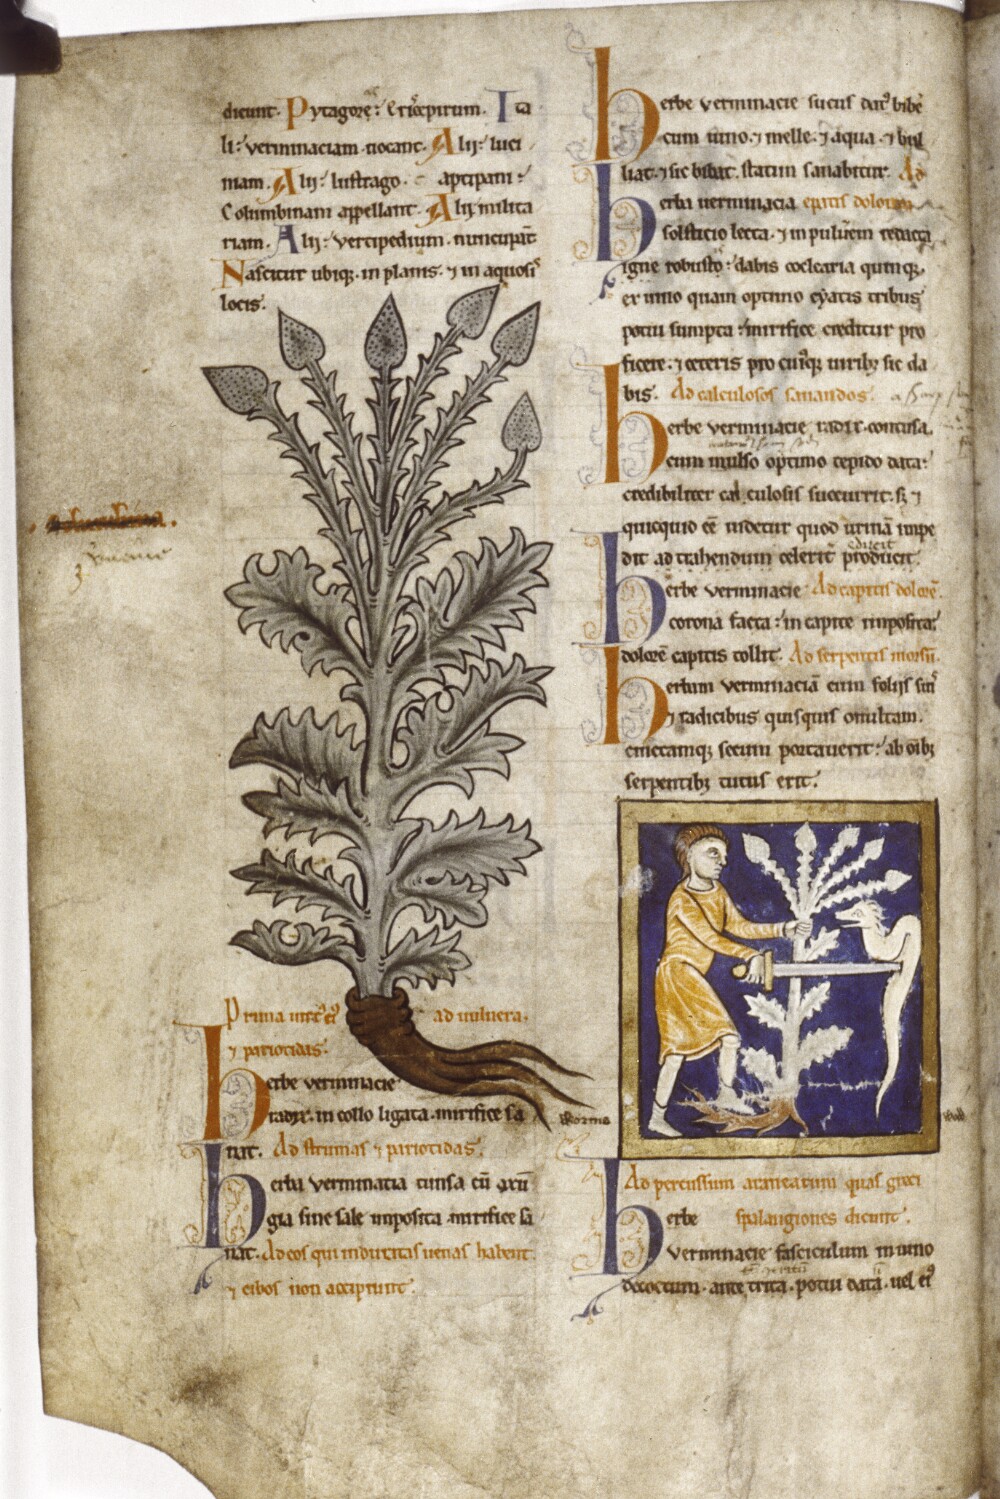 dicunt. Pytagore: erixepirum. Ita
li: verminaciam uocant. Alij: luci
niam. Alij: lustrago. aptipani:
Columbinam appellant. Alij milita
riam. Alij: vertipedium. nuncupāt
Nascitur ubiq. in planis. ⁊ in aquosis
locis.
Prima ad uulnera.
⁊ pariotidas.
herbe verminacie
radix. in collo ligata. mirifice sa
nat. Ad strumas ⁊ pariotidas.
herba verminatia tunsa cū axū
gia sine sale imposita. mirifice sa
nat. Ad eos qui induritas uenas habent
⁊ cibos non accipiunt.
herbe verminacie sucus datꝰ bibe
cum uino. ⁊ melle. ⁊ aqua. ⁊ bul
liat. ⁊ sic bibat. statim sanabitur. Ad
herba uerminacia epatis dolorem
solsticio lecta. ⁊ in puluem redacta
igne robusto: dabis coclearia quinq.
ex uino quam optimo cyatis tribus
potui sumpta: mirifice creditur pro
ficere. ⁊ ceteris pro cuiq uirib; sic da
bis. Ad calculosos sanandos.
herbe verminacie radix. contusa.
cum mulso optimo tepido data:
credibiliter calculosis succurrit. s; ⁊
quicquid eē uidetur quod urinā impe
dit ad trahendum celerit producit.
herbe verminacie Ad capitis dolorē.
corona facta: in capite imposita:
dolorē capitis tollit. Ad serpentis morsū.
herbam verminaciā cum folijs suis
⁊ radicibus quisquis
emetamq; secum portauerit: ab oīb;
serpentib; tutus erit.
Ad percussum araneatum quas greci
herbe spalangiones dicunt.
verminacie fasciculum in uino
decoctum. ante trita. potui data. uel eiꝰ